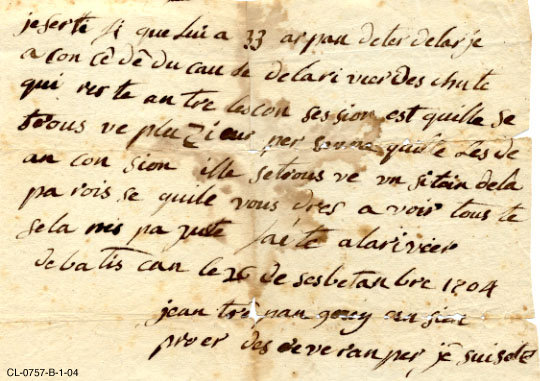 je serte fi que lui a 33 arpan de ter de larje
a con cê dê du cau de de la ri vier des chute
qui res te an tre les con session est quille se
trous ve pluzieur per sonne quile les de
an con sion ille se trous ve un sitoin de la
pa rois se quile vous dres a voir tous te
se la nes pa jute fai te a la ri vier
de batis can le 26 de sesbetanbre 1804
jean tre pan gouy an sien
pro er des de ve ran per je suis
CL-0757-B-1-04